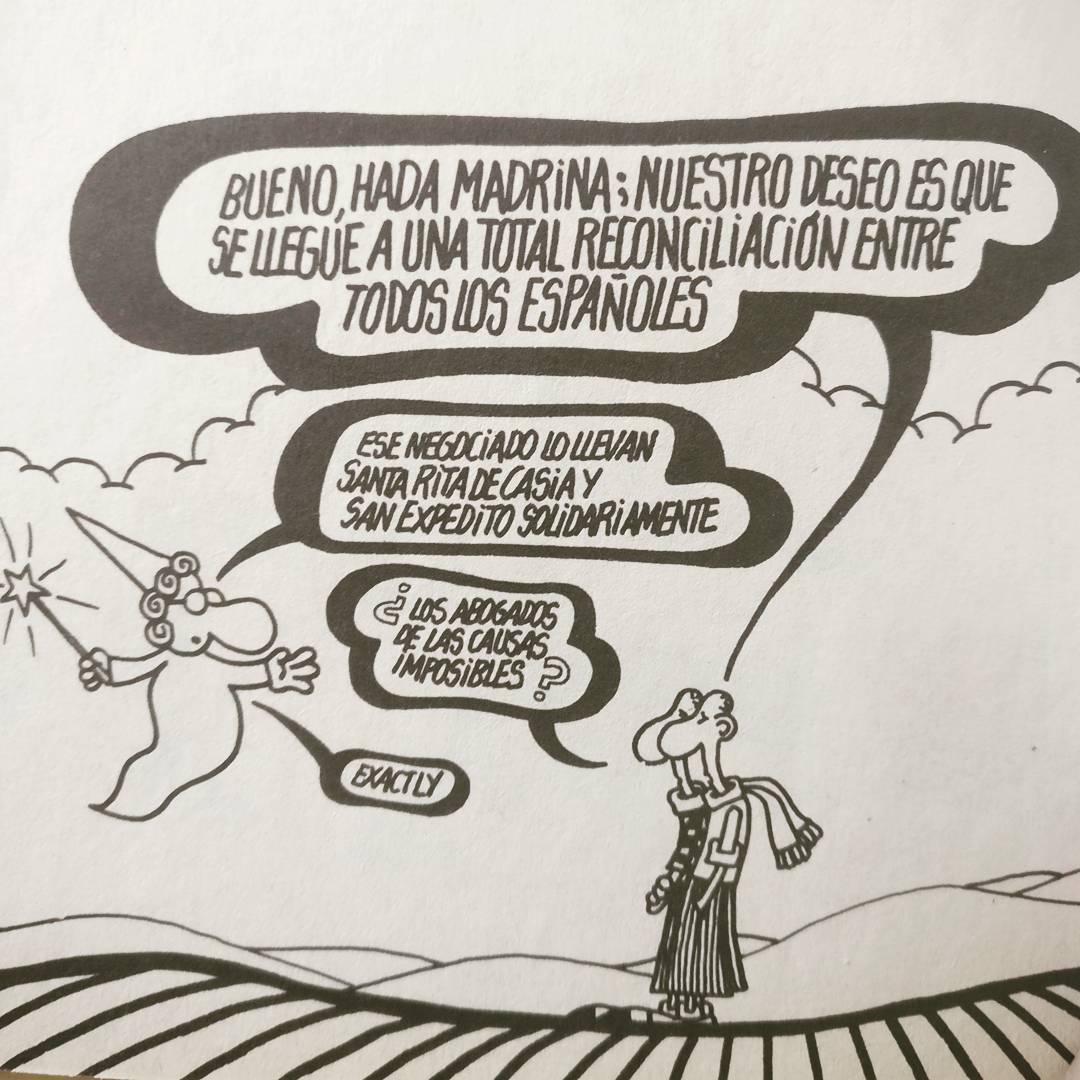 BUENO, HADA MADRiNA; NUESTRO DESEO ES QUE
SE LLEGUE A UNA TOTAL RECONCiLiACiÓN ENTRE
TODOS LOS ESPAÑOLES
ESE NEGOCiADO LO LLEVAN
SANTA RiTA DE CASiA Y
SAN EXPEDiTO SOLiDARiAMENTE
¿LOS ABOGADOS
DE LAS CAUSAS
iMPOSiBLES?
EXACTLY